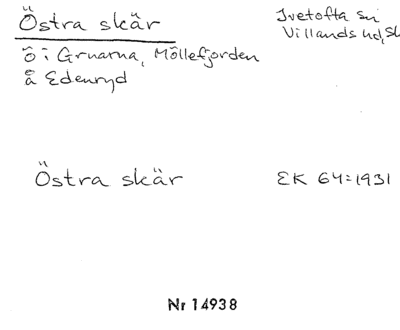 Östra skär
Ivetofta sn
Villands hd, Sk
ö i Gruarna, Möllefjorden
å Edenryd
Östra skär
EK 64:1931
Nr 14938